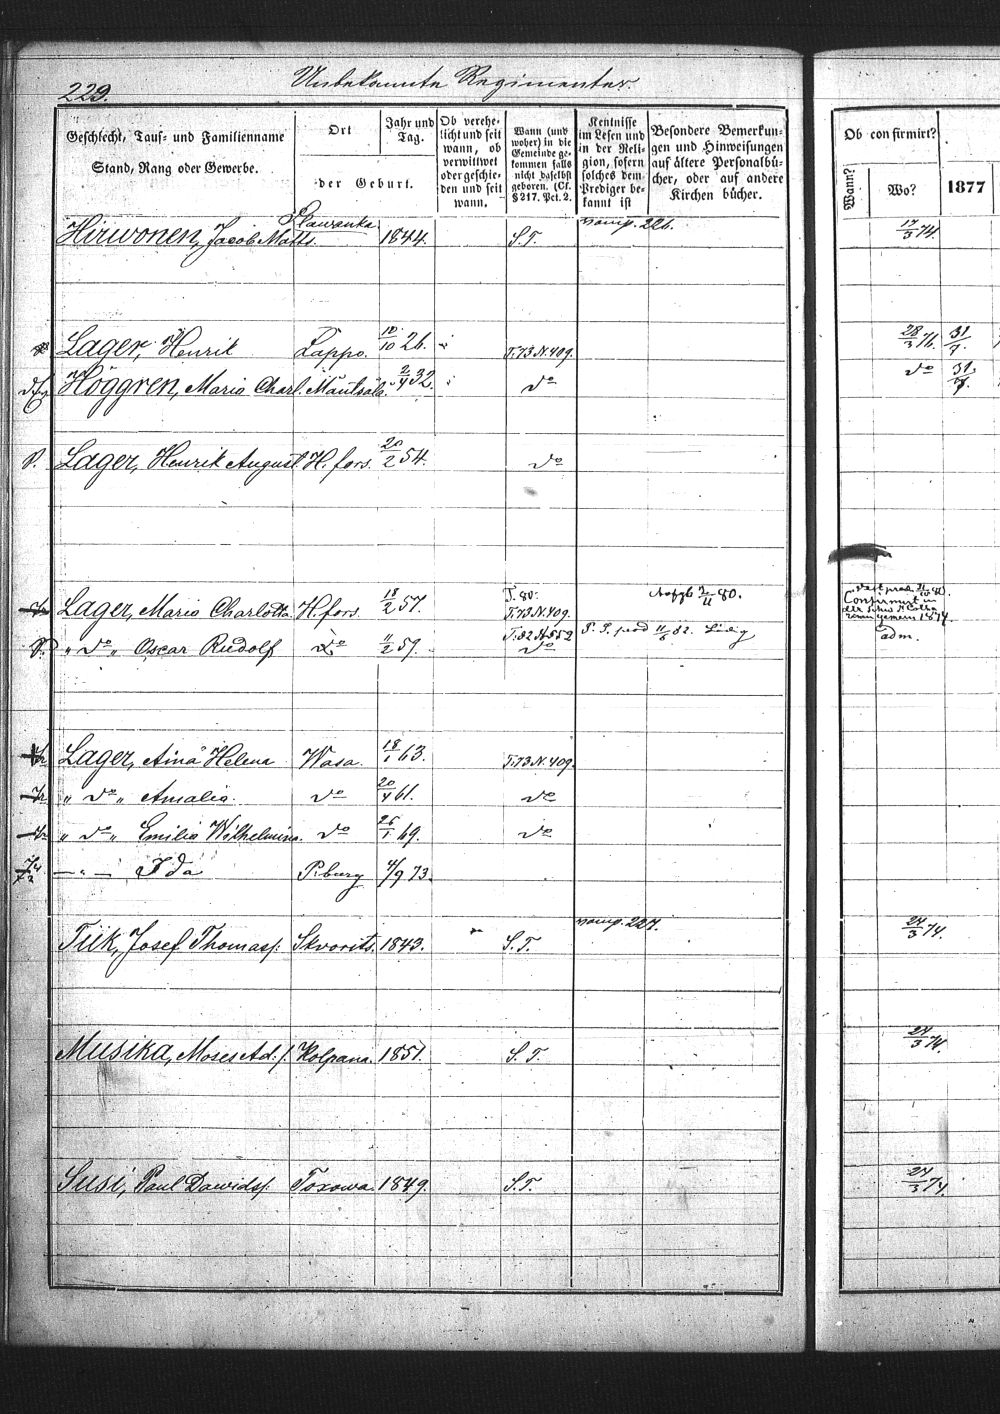 229.
Unbekannte Regimenter.
Geschlecht, Tauf- und Familienname
Stand, Rang oder Gewerbe.
Ort
der Geburt.
Jahr und
Tag.
Ob verehe-
licht und seit
wann, ob
verwittwet
oder geschie-
den und seit
wann.
Wann (und
woher) in die
Gemeinde ge-
kommen falls
nicht daselbst
geboren. (Cf.
§ 217. Pct. 2.
Kentnisse
im Lesen und
in der Reli-
gion, sofern
solches dem
Prediger be-
kannt ist
Besondere Bemerkun-
gen und Hinweisungen
auf ältere Personalbü-
cher, oder auf andere
Kirchen bücher.
Ob confirmirt?
Wann?
Wo?
1877
Hirwonen, Jacob Matts. Slawanka 1844. S.T. 226. 17/3 74.
Lager, Henrik Lappo. 10/10 26. T.73 N.409. 28/3 76. 31/7.
Höggren, Maria Charl. Mäntsälä. 2/4 32. do do 31/7
Lager, Henrik August H.fors. 20/2 54. do
Lager, Maria Charlotta H.fors. 18/2 57. T. 80. T.73 N.409. 80.
Confirmirt in
1874.
" do " Oscar Rudolf do 11/2 59. T.82 N.552 do adm.
Lager, Aina Helena Wasa. 18/1 63. T.73 N.409.
" do " Amalia. do 20/4 61. do
" do " Emilia Wilhelmina. do 26/1 69. do
— " — Ida P.burg 4/9 73.
Tiik, Josef Thomass. Skvorits. 1843. S.T. 227. 24/3 74.
Musika, Moses Ad.s. Kolpana. 1851. S.T. 24/3 74.
Susi, Paul Dawids. Toxowa. 1849. S.T. 24/3 74.